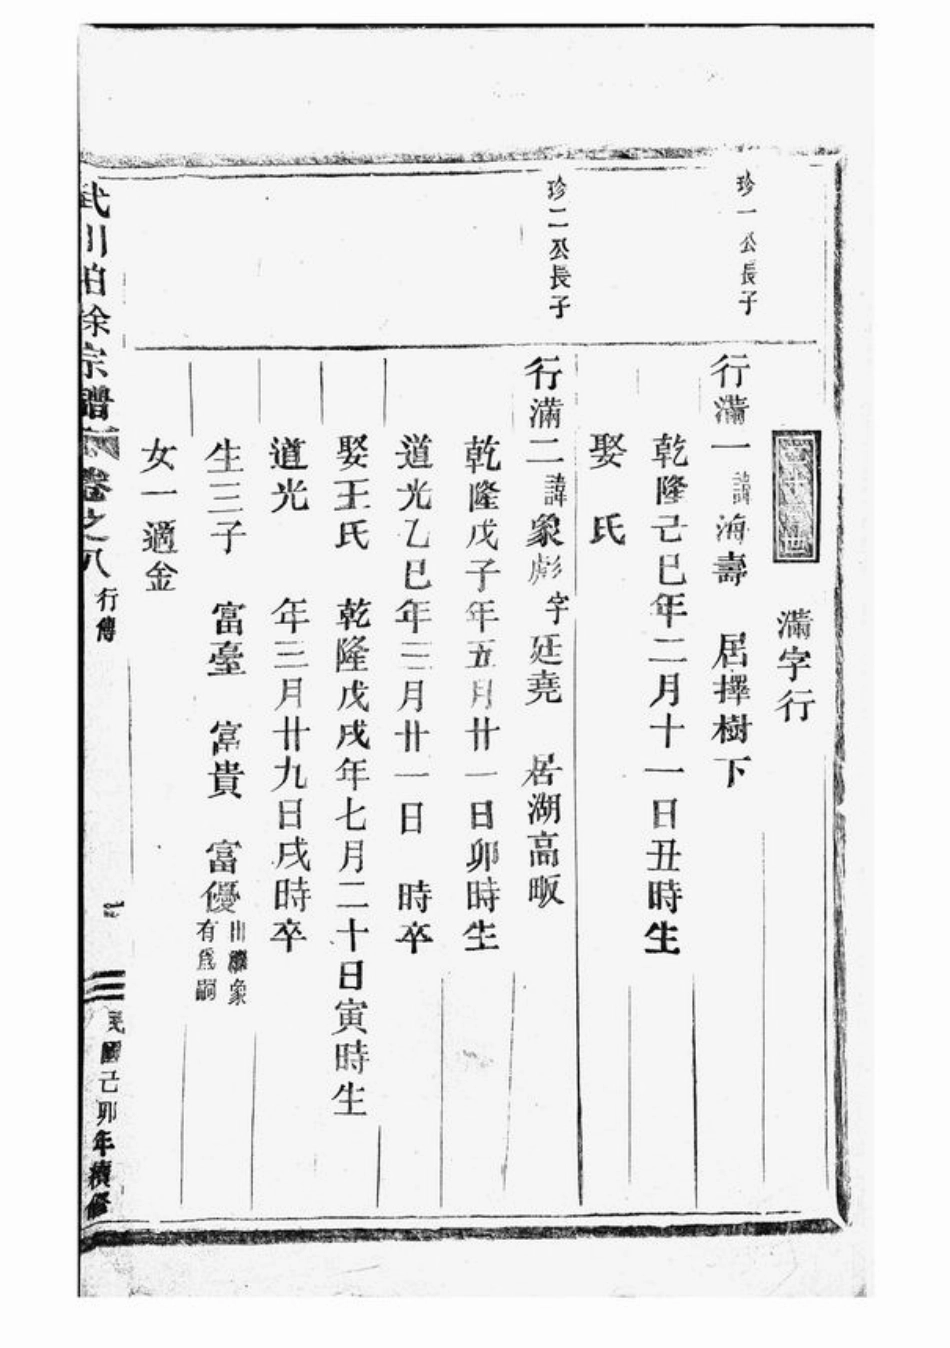 滿字行
珍一公長子
行滿一諱海壽 居擇樹下
乾隆己巳年二月十一日丑時生
娶 氏
珍二公長子
行滿二諱象彪字廷堯 居湖高畈
乾隆戊子年五月廿一日卯時生
道光乙巳年三月廿一日 時卒
娶王氏 乾隆戊戌年七月二十日寅時生
道光 年三月廿九日戌時卒
生三子 富臺 富貴 富優
象
有為嗣
女一適金
武川柏徐宗譜 卷之八 行傳
民國己卯年續修